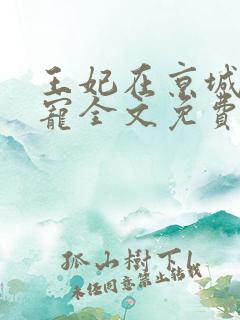 王妃在京城
寵全文免費
孤山樹下1
未经同意禁止转载